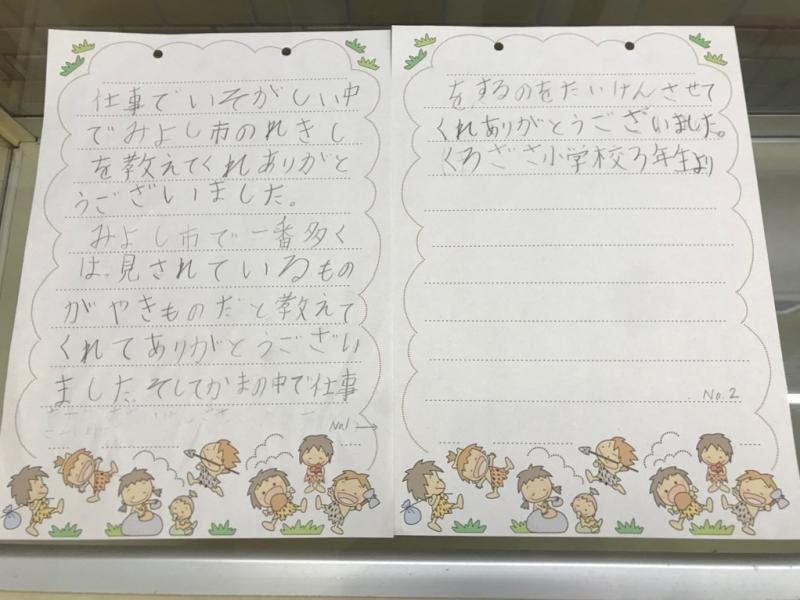 仕事でいそがしい中
でみよし市のれきし
を教えてくれありがと
うございました。
みよし市で一番多く
は、見されているもの
がやきものだと教えて
くれてありがとうござい
ました。そしてかまの中で仕事
No.1→
をするのをたいけんさせて
くれありがとうございました。
くろざさ小学校3年生より
No.2